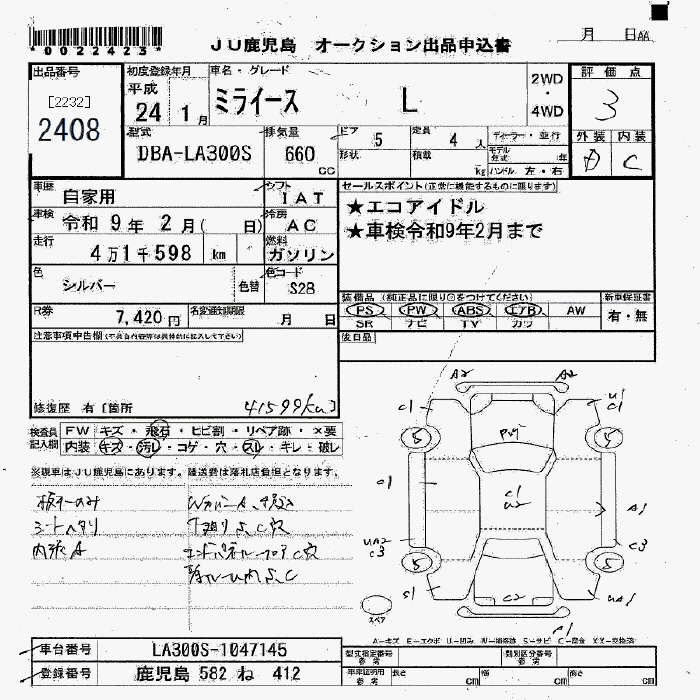 *0022423*
JU鹿児島 オークション出品申込書
月 日AA
出品番号
[2232]
2408
初度登録年月
平成
24 1月
車名・グレード
ミライース L
2WD
・
4WD
評価点
3
型式
DBA-LA300S
排気量
660 CC
ドア 5
形状
定員 4 人
積載 kg
ディーラー・並行
モデル年式 年
ハンドル 左・右
外装 内装
D C
車歴 自家用
シフト IAT
車検 令和 9年 2月( 日)
冷房 AC
走行 4万1千598 km
燃料 ガソリン
色 シルバー
色替
色コード S28
R券 7,420円
名変通知期限 月 日
セールスポイント(正常に機能するものに限ります)
★エコアイドル
★車検令和9年2月まで
装備品 (純正品に限り○をつけてください)
新車保証書
PS PW ABS エアB AW
SR ナビ TV カワ
有・無
後日品
注意事項申告欄
修復歴 有( )箇所
41599km
検査員記入欄
FW キズ・飛石・ヒビ割・リペア跡・×要
内装 キズ・汚レ・コゲ・穴・スレ・キレ・破レ
※現車はJU鹿児島にあります。陸送費は落札店負担となります。
シートヘタリ
内張A
A2 A2
C1 U1
C1
5 5
C1
U2
C1
A1
UA2
C3
C3
5 5
S1
C2
UA1
C1
スペア
A-キズ E-エクボ U-凹ミ W-補修跡 S-サビ C-腐食 XX-交換済
車台番号 LA300S-1047145
登録番号 鹿児島 582 ね 412
型式指定番号
参考
類別区分番号
参考
車庫証明用
参考
長さ cm
幅 cm
高さ cm